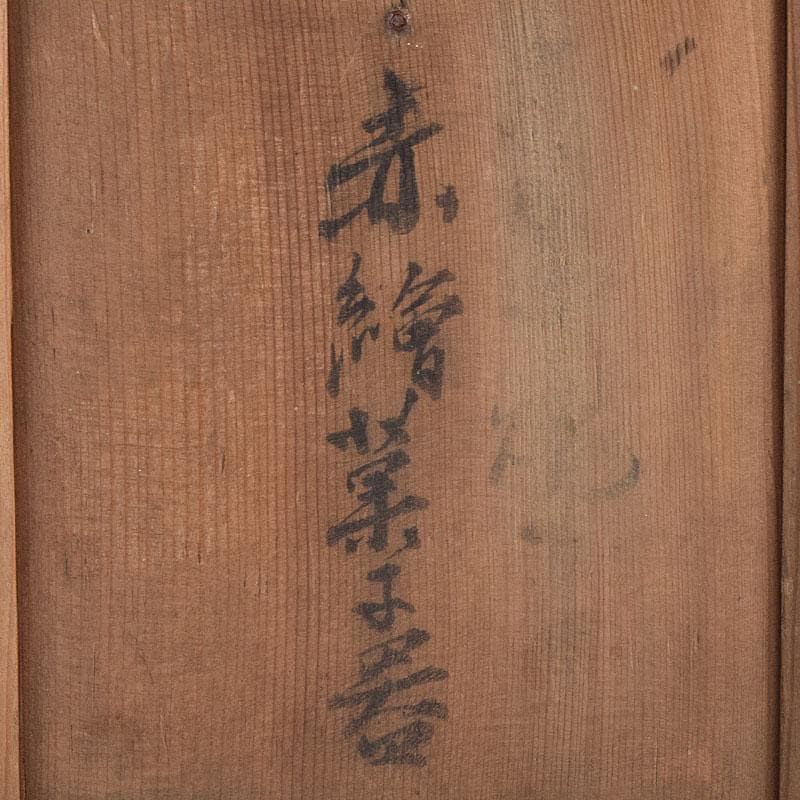 赤繪菓子器